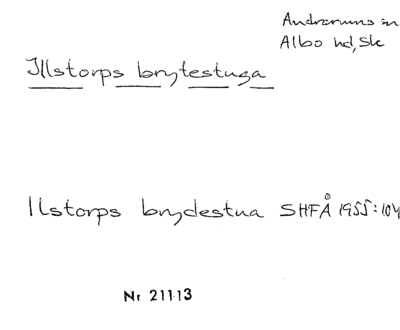 Andrarums sn
Albo hd, Sk
Illstorps brytestuga
Ilstorps brydestua SHFÅ 1955:104
Nr 21113